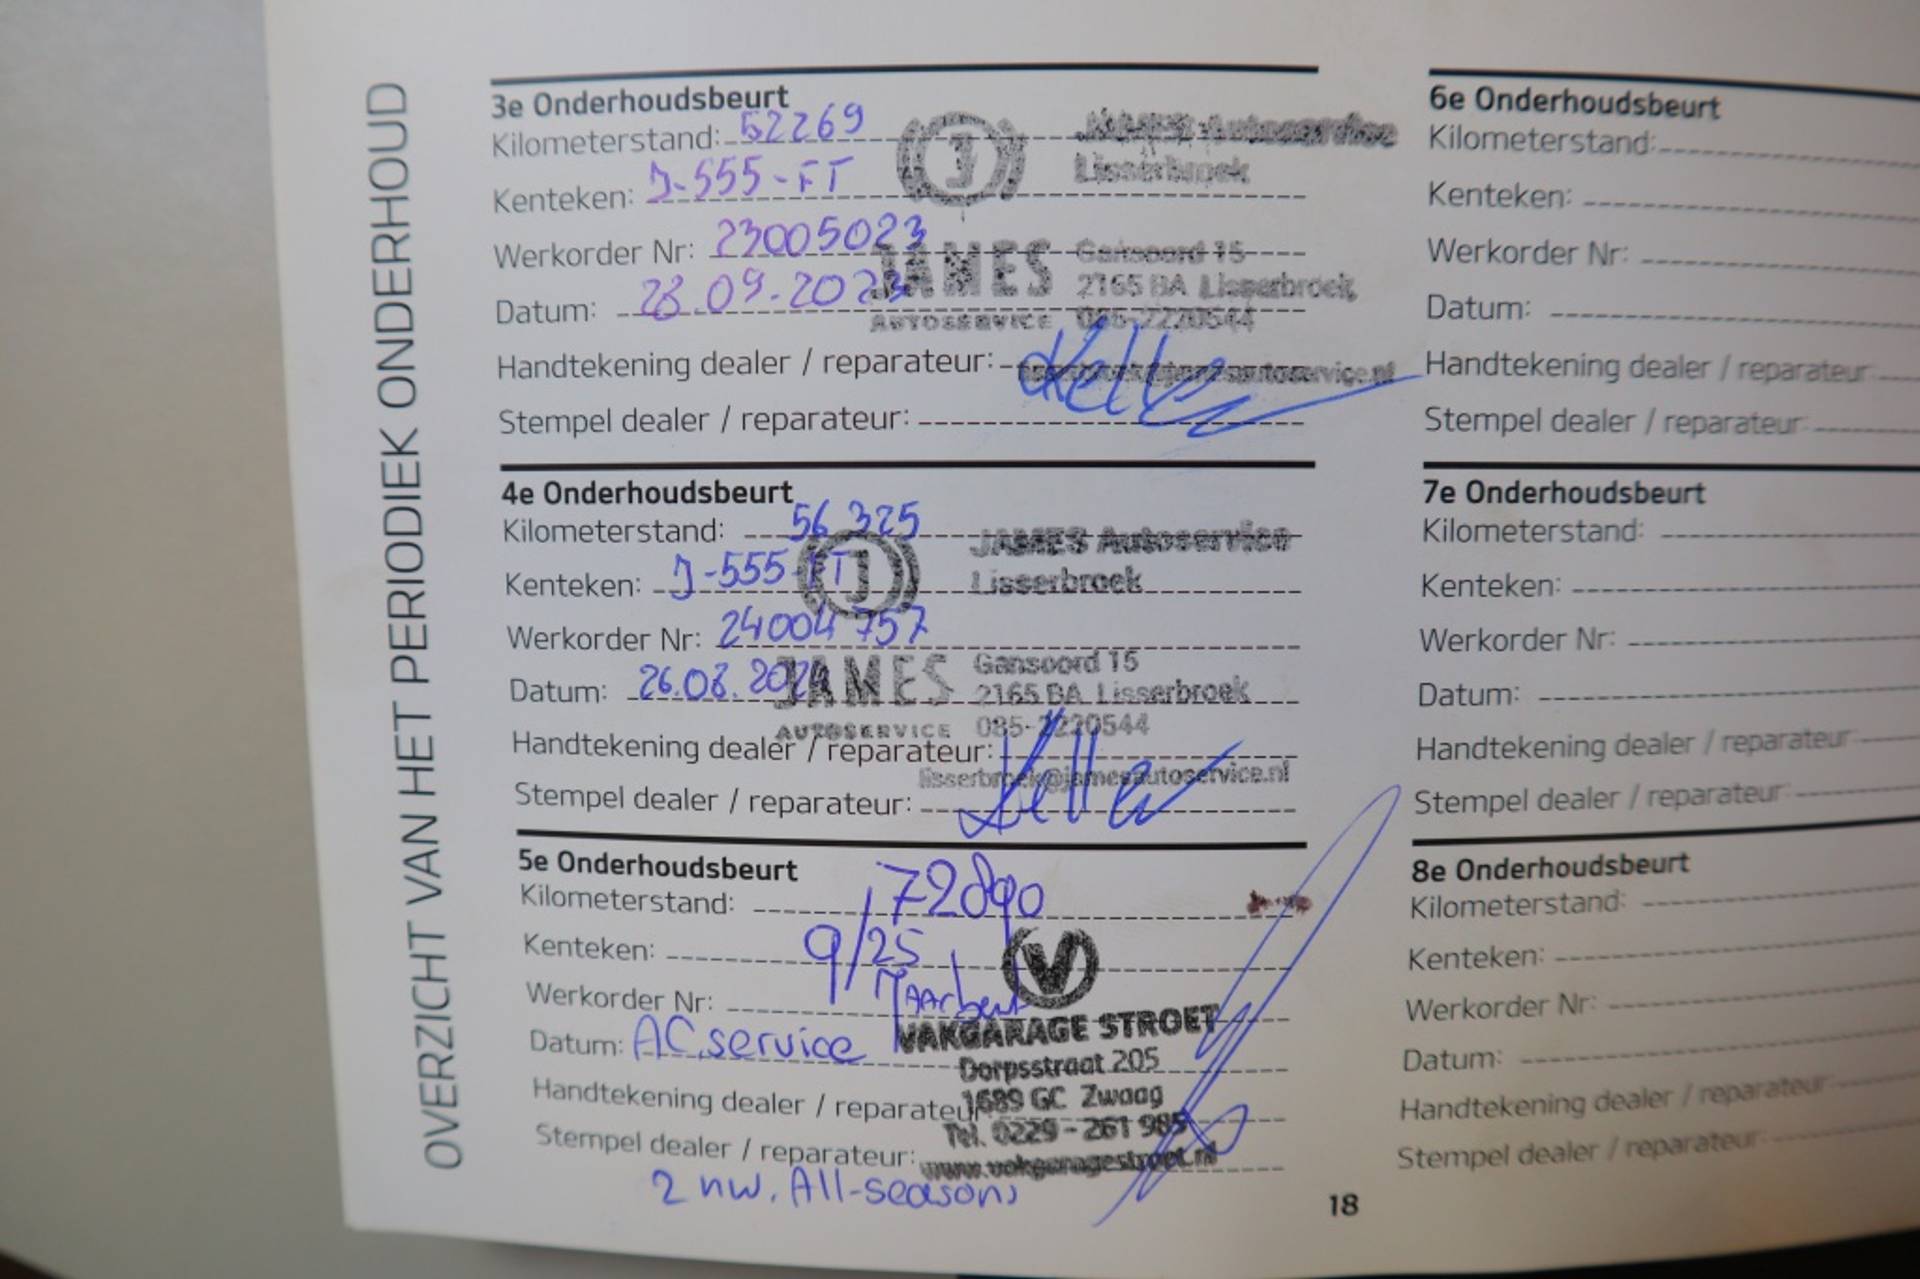 OVERZICHT VAN HET PERIODIEK ONDERHOUD
3e Onderhoudsbeurt
Kilometerstand: 52269
Kenteken: J-555-FT
Werkorder Nr: 23005023
Datum: 28.09.2023
Handtekening dealer / reparateur:
Stempel dealer / reparateur:
J
JAMES
AUTOSERVICE
JAMES Autoservice
Lisserbroek
Gansoord 15
2165 BA Lisserbroek
085-2220544
lisserbroek@jamesautoservice.nl
4e Onderhoudsbeurt
Kilometerstand: 56 325
Kenteken: J-555-FT
Werkorder Nr: 24004757
Datum: 26.08.2024
Handtekening dealer / reparateur:
Stempel dealer / reparateur:
J
JAMES
AUTOSERVICE
JAMES Autoservice
Lisserbroek
Gansoord 15
2165 BA Lisserbroek
085-2220544
lisserbroek@jamesautoservice.nl
5e Onderhoudsbeurt
Kilometerstand: 72890
Kenteken: 9/25
Werkorder Nr: Jaarbeurt
Datum: AC service
Handtekening dealer / reparateur:
Stempel dealer / reparateur:
V
VAKGARAGE STROET
Dorpsstraat 205
1689 GC Zwaag
Tel. 0229 - 261 985
www.vakgaragestroet.nl
2 nw. All-seasons
6e Onderhoudsbeurt
Kilometerstand:
Kenteken:
Werkorder Nr:
Datum:
Handtekening dealer / reparateur:
Stempel dealer / reparateur:
7e Onderhoudsbeurt
Kilometerstand:
Kenteken:
Werkorder Nr:
Datum:
Handtekening dealer / reparateur:
Stempel dealer / reparateur:
8e Onderhoudsbeurt
Kilometerstand:
Kenteken:
Werkorder Nr:
Datum:
Handtekening dealer / reparateur:
Stempel dealer / reparateur:
18